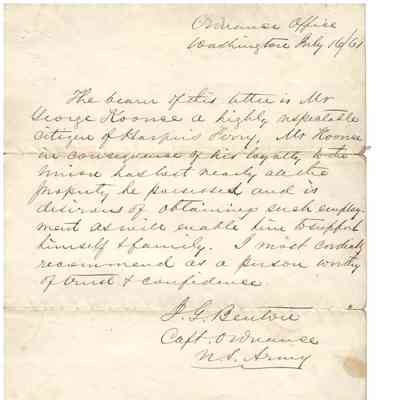 Ordnance Office
Washington July 16/61
The bearer of this letter is Mr
George Koonce a highly respectable
citizen of Harpers Ferry. Mr Koonce
in consequence of his loyalty to the
Union has lost nearly all the
property he possessed, and is
desirous of obtaining such employ-
ment as will enable him to support
himself & family. I most cordially
recommend as a person worthy
of trust & confidence
J. G. Benton
Capt. Ordnance
U.S. Army